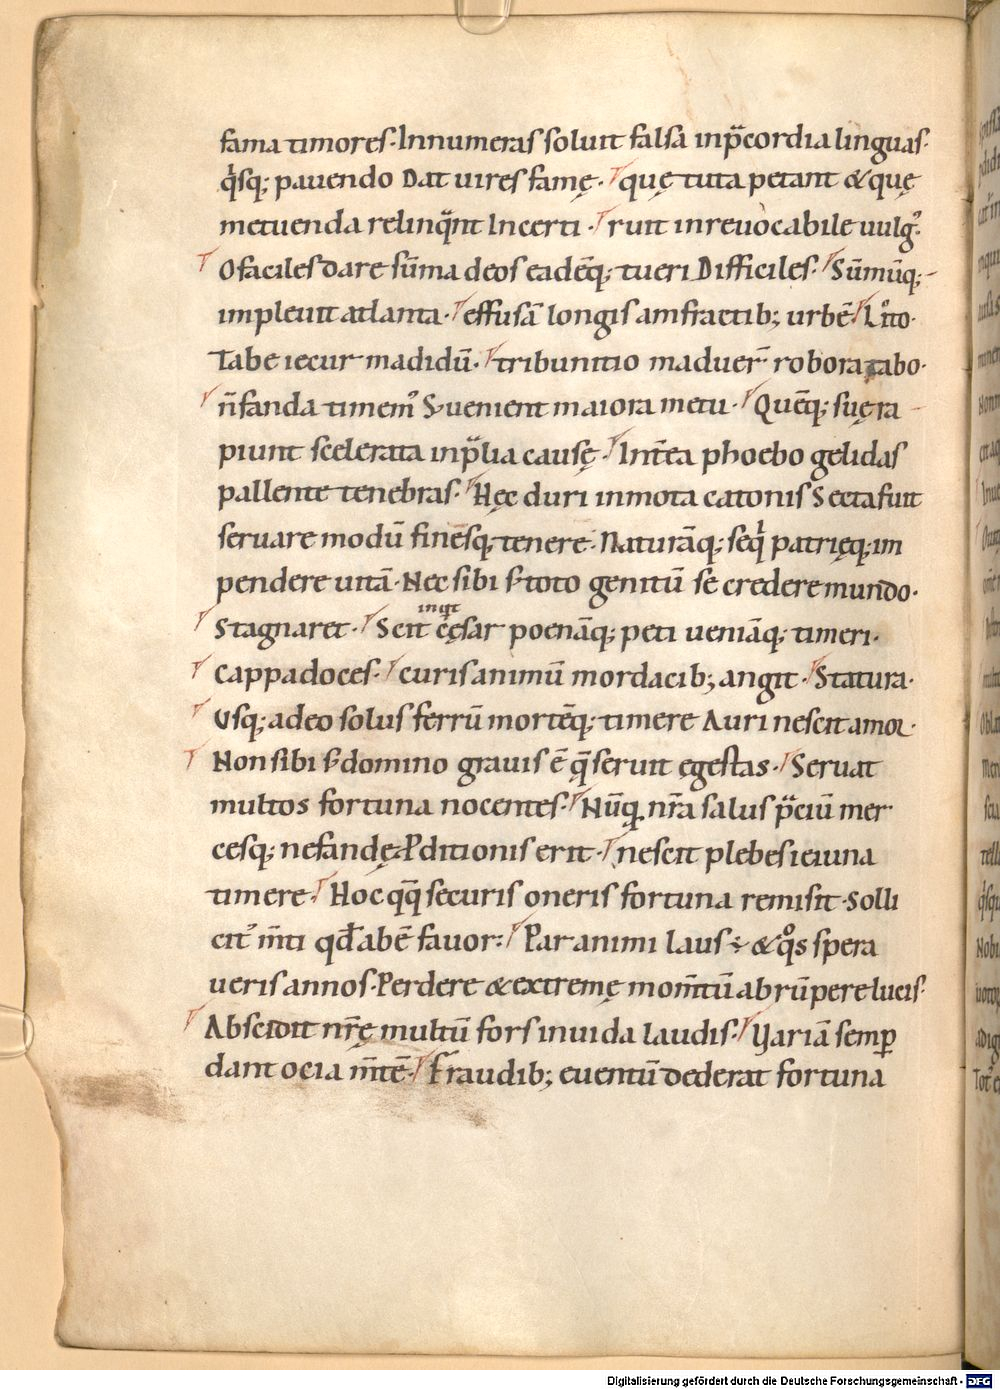 fama timores · Innumeras soluit falsa inp̄cordia linguas ·
q̇sq; pauendo Dat uires famę · quę tuta petant & quę
metuenda relinq̄nt Incerti · ruit inreuocabile uulgꝰ ·
O faciles dare sūma deos eadēq; tueri Difficiles · Sūmūq;
impleuit atlanta · effusā longis amfractib; urbē · L̊ito ·
Tabe iecur madidū · tribunitio maduer̄ robora tabo ·
n̄fanda timemꝰ S; uenient maiora metu · Quēq; suę ra
piunt scelerata inp̄lia causę · Int̄ea phoebo gelidas
pallente tenebras · Hęc duri inmota catonis Secta fuit
seruare modū finesq; tenere · Naturāq; seq̇ patrięq; im
pendere uitā · Nec sibi s; toto genitū se credere mundo ·
Stagnaret · Scit inq̇t cęsar poenāq; peti ueniāq; timeri ·
Cappadoces · curis animū mordacib; angit · Statura ·
Usq; adeo solus ferrū mortēq; timere Auri nescit amor ·
Non sibi s; domino grauis ē q̄ seruit egestas · Seruat
multos fortuna nocentes · Nūq̇ nr̄a salus p̄ciū mer
cesq; nefandę Ꝑditionis erit · nescit plebes ieiuna
timere · Hoc q̄q̄ securis oneris fortuna remisit · Solli
citꝰ m̄ti qd̄ abē fauor : Par animi laus ÷ & q̊s spera
ueris annos · Perdere & extremę mom̄tū abrūpere lucis ·
Abscidit nr̄ę multū fors inuida laudis · Uariā semꝑ
dant ocia m̄tē · Fraudib; euentū dederat fortuna
Digitalisierung gefördert durch die Deutsche Forschungsgemeinschaft - DFG